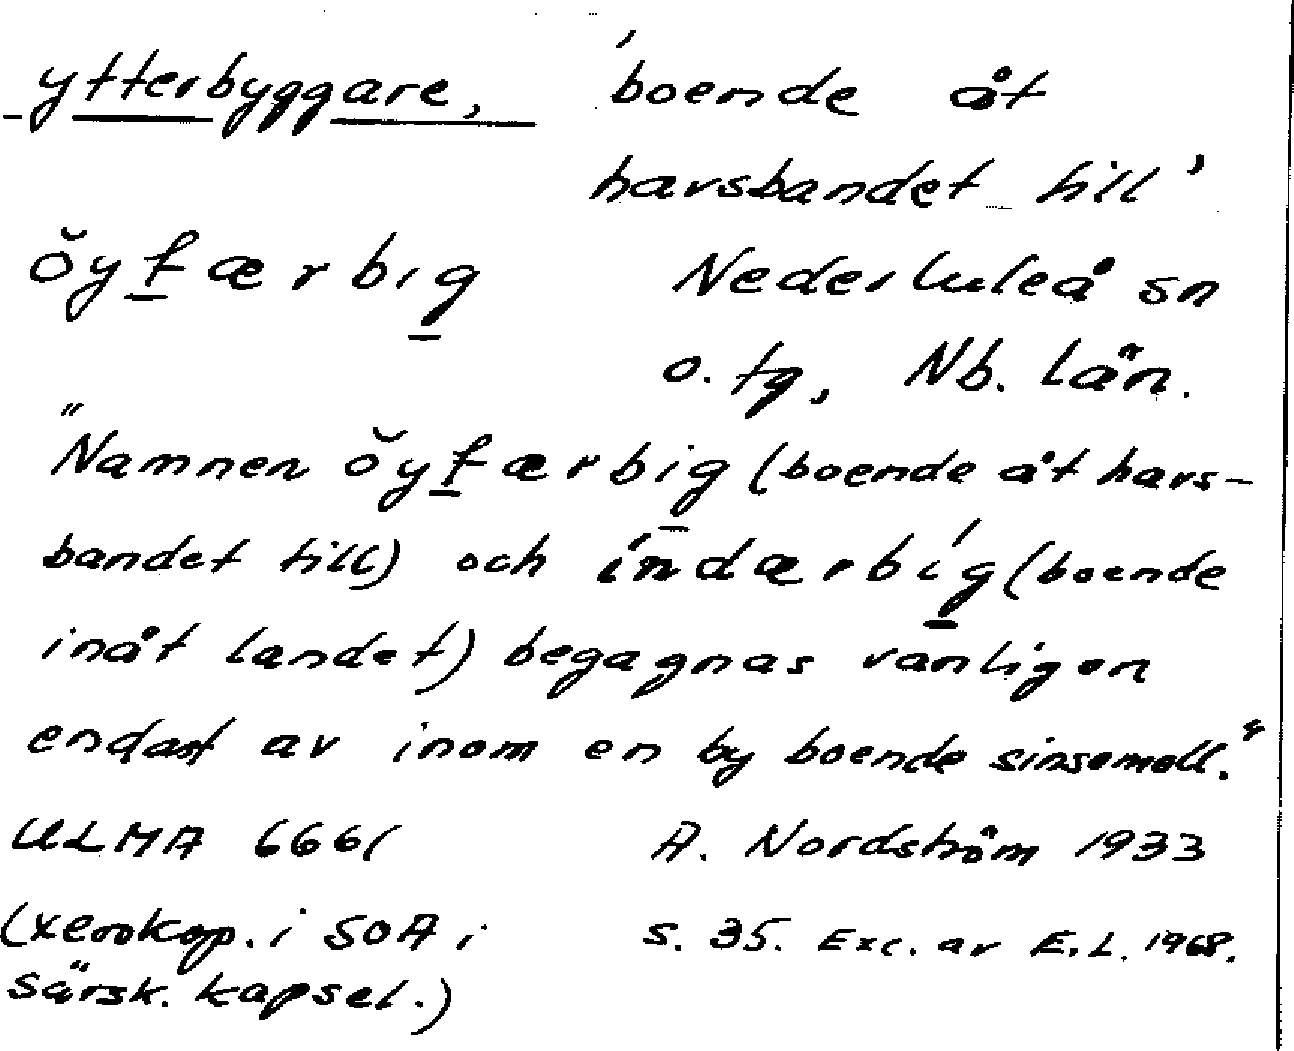 ytterbyggare, 'boende åt
havsbandet till'
ŏyṯærbig̱ Nederluleå sn
o. tg, Nb. län.
"Namnen ŏyṯærbig̱ (boende åt havs-
bandet till) och índærbíg̱ (boende
inåt landet) begagnas vanligen
endast av inom en by boende sinsemell."
ULMA 6661 A. Nordström 1933
(xerokop. i SOA i s. 35. Exc. av E.L. 1968.
särsk. kapsel.)